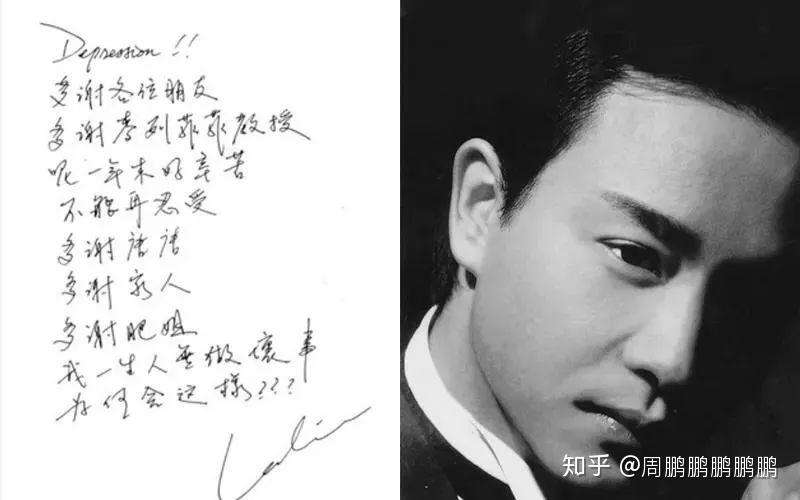 Depression!!
多谢各位朋友
多谢麦列菲菲教授
呢一年来好辛苦
不能再忍受
多谢唐唐
多谢家人
多谢肥姐
我一生人無做壞事
为何会这樣???
Leslie
知乎 @周鹏鹏鹏鹏鹏